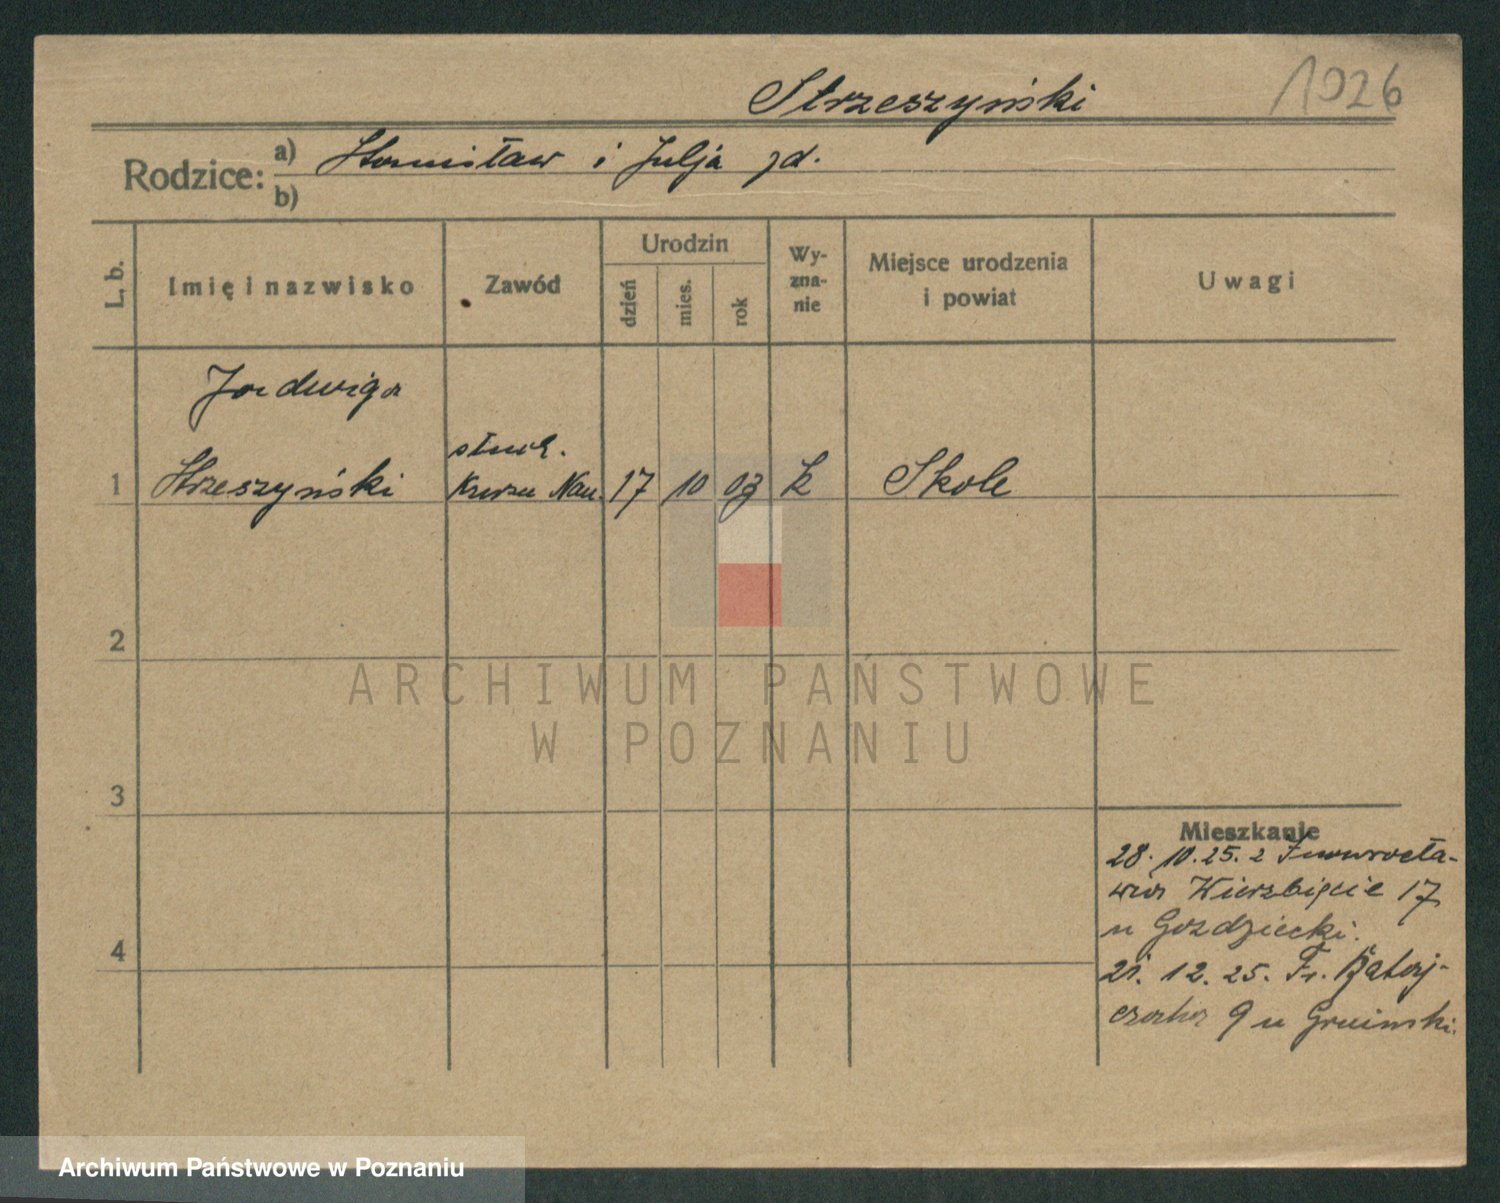 Strzeszyński
1926
Rodzice:
a) Stanisław i Julja zd.
b)
L. b.
Imię i nazwisko
Zawód
Urodzin
dzień
mies.
rok
Wy-
zna-
nie
Miejsce urodzenia
i powiat
Uwagi
Jadwiga
słuch.
1 Strzeszyński Kursu Nau. 17 10 03 k Skole
2
ARCHIWUM PAŃSTWOWE
W POZNANIU
3
Mieszkanie
28.10.25. z Inowrocła-
wia Wierzbięcie 17
u Goździecki.
4
21. 12. 25. Fr. Rataj-
czaka 9 u
Archiwum Państwowe w Poznaniu